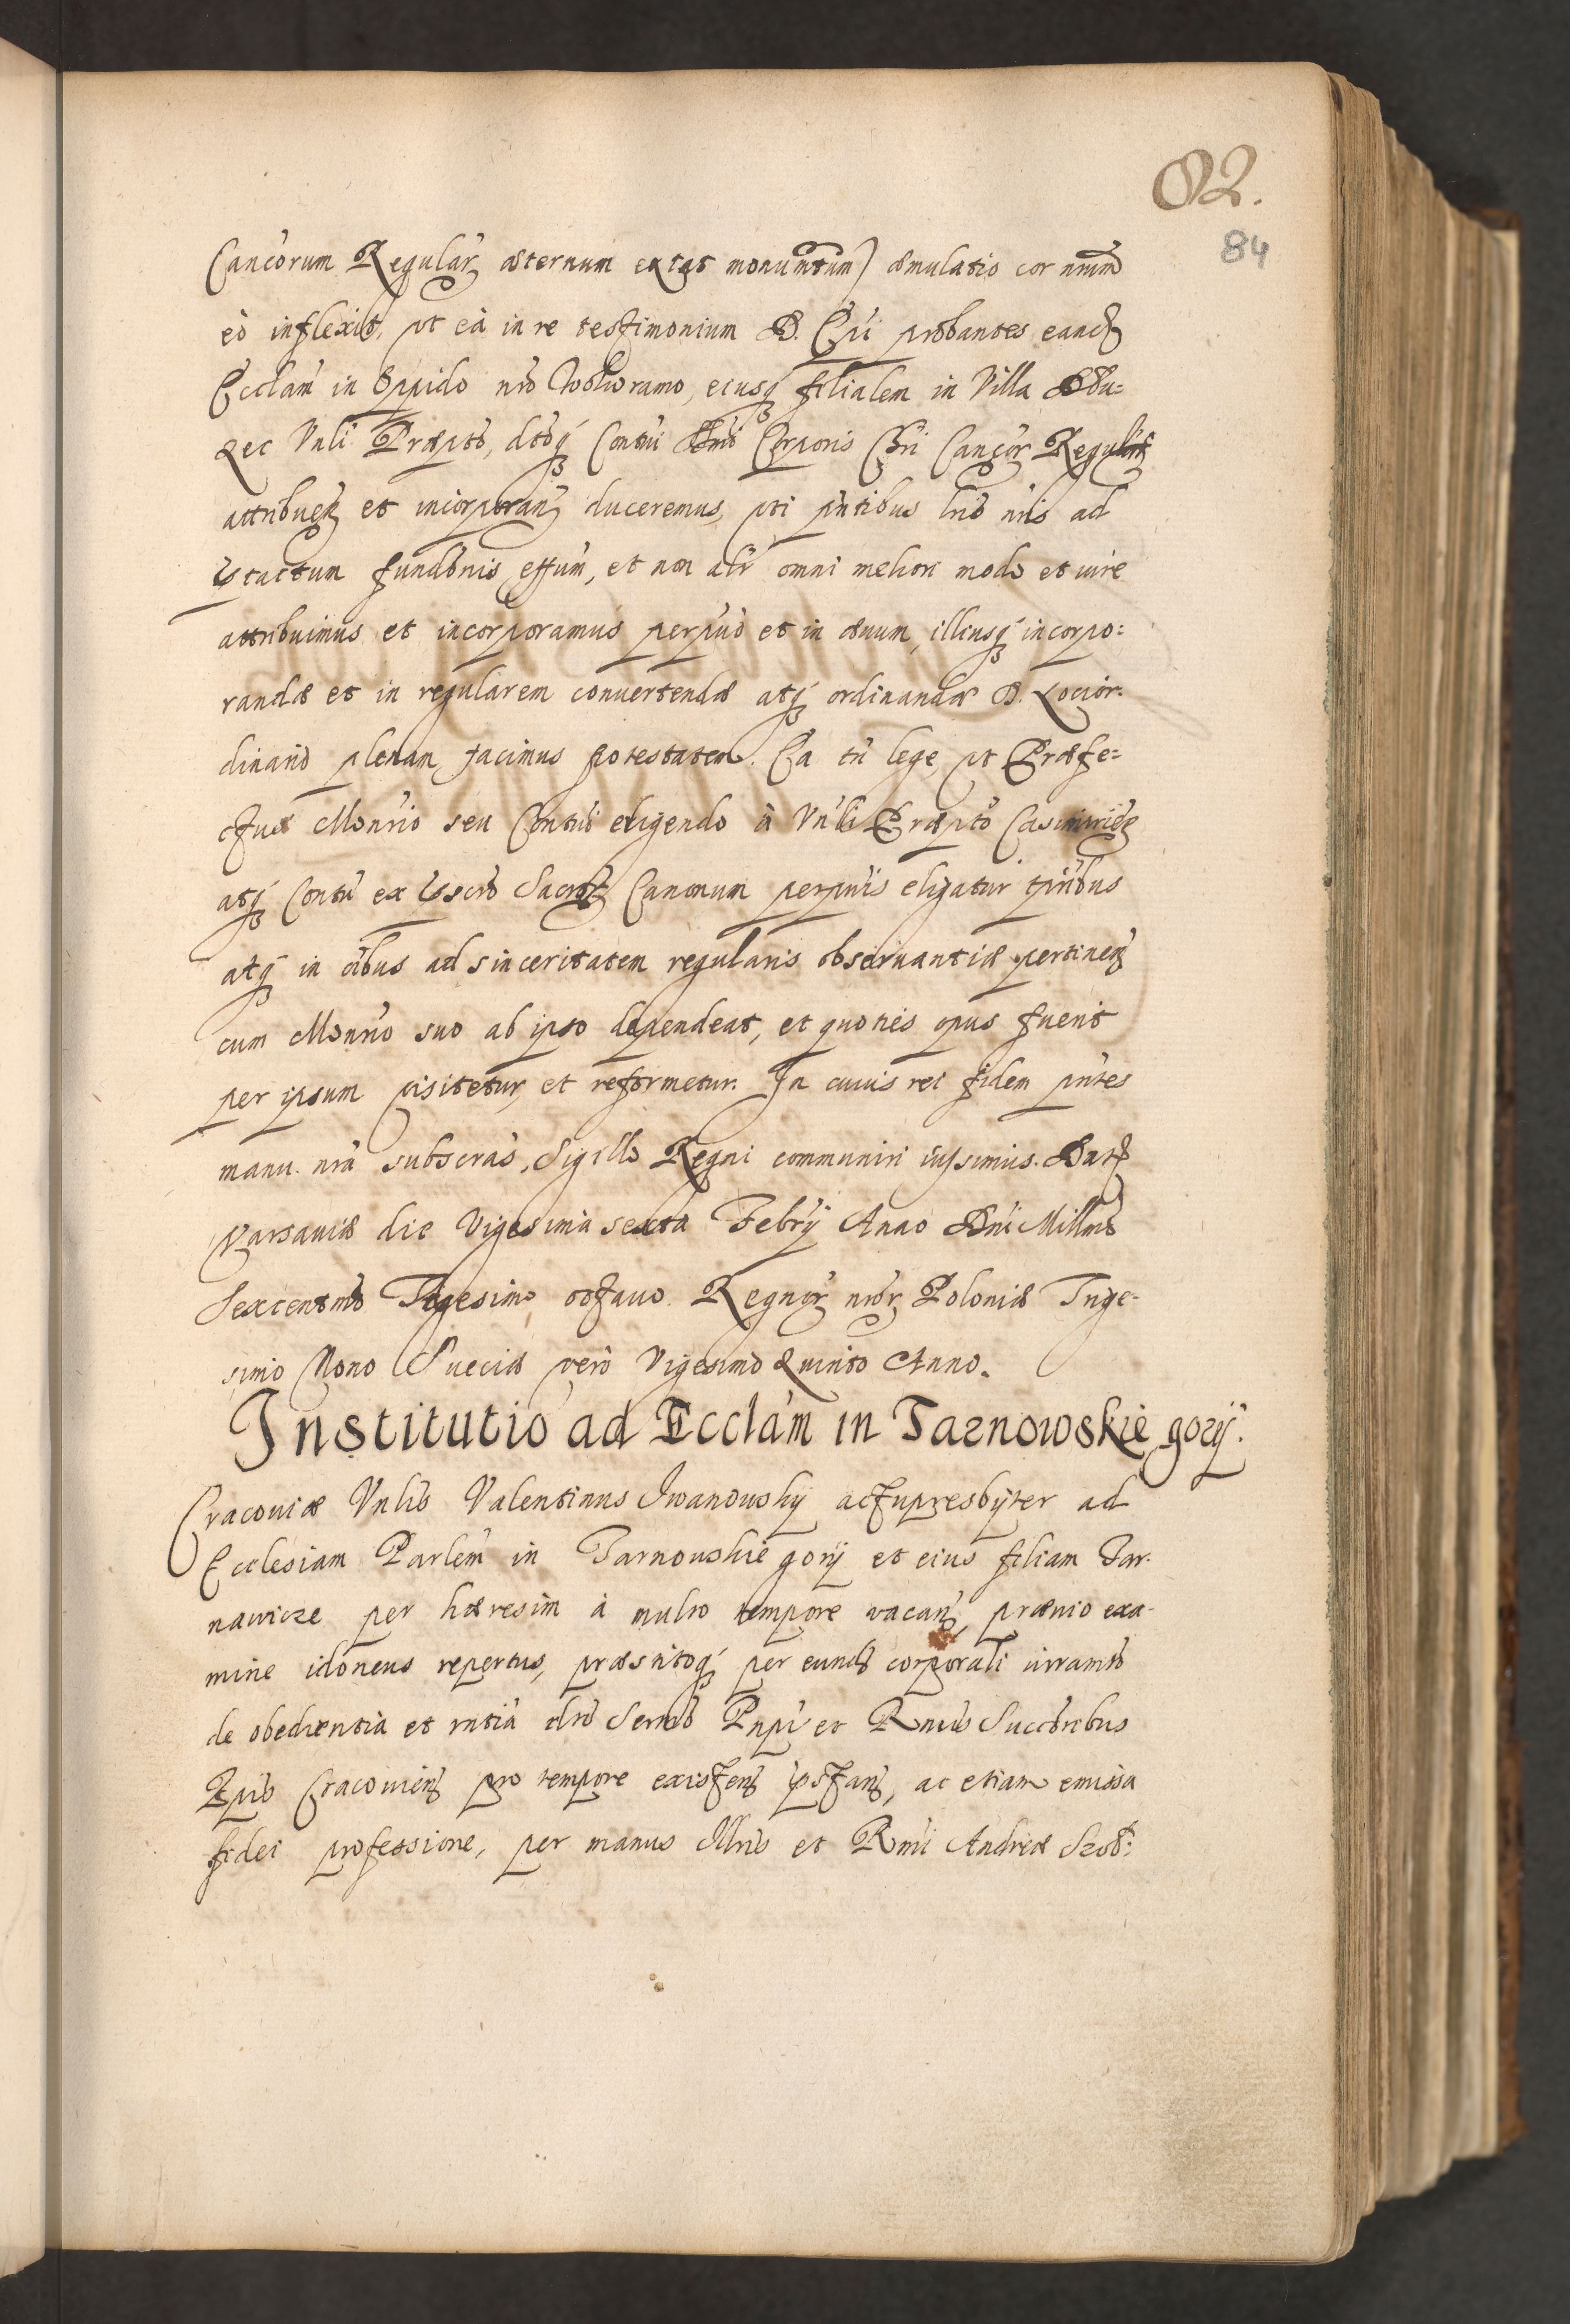 82.
84
Cancorum Regular æternum extat monumtum) æmulatio cor nrum
eò inflexit, vt eà in re testimonium D. Epi probantes eand
Ecclam in Oppido nro Wolworamo, eiusq filialem in Villa
Vnli Præpto, dtoq Contui Corporis Chri Cancor Regul
attribuen et incorporan duceremus, vti pntibus lris nris ad
fundonis effum, et non alr omni meliori modo et iure
attribuimus et incorporamus perpuò et in æuum, illiusq incorpo:
randæ et in regularem conuertendæ atq ordinandæ D. Locior:
dinario plenam facimus potestatem. Ea tn lege vt Præfe:
ctus Monrio seu Contui eligendo à Vnli Præpto Casimirien
atq Contu ex Sacror Canonum perpuis eligatur tpribus
atq in oibus ad sinceritatem regularis obseruantiæ pertinen
cum Monrio suo ab ipso dependeat, et quoties opus fuerit
per ipsum visitetur, et reformetur. In cuius rei fidem pntes
manu nra subscras, Sigillo Regni communiri iussimus. Dat
Varsauiæ die Vigesima sexta Febrij Anno Dni Millmo
Sexcentmo Tigesimo octauo. Regnor nror Poloniæ Trige-
simo Nono Sueciæ verò Vigesimo Quinto Anno.
Institutio ad Ecclam in Tarnowskie gorij.
Cracouiæ Vnlis Valentinus Iwanowsky actupresbyter ad
Ecclesiam Parlem in Tarnowskie gorij et eius filiam Tar-
nawicze per hæresim à multo tempore vacan, præuio exa-
mine idoneus repertus, præstitoq per eund corporali iuramto
de obedientia et rntia dto Sermo Pnpi et Rmis Succoribus
Epis Cracouien pro tempore existen, ac etiam emissa
fidei professione, per manus Illris et Rmi Andreæ Szol: